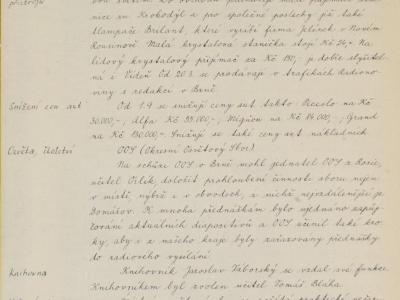 přístroje
nice zn. Krokodýl a pro společné poslechy již také
tlampače Brilant, které vyrábí firma Jelínek v Novém
Rousínově. Malá krystalová stanička stojí Kč 24,- Na
lidový krystalový přijímač za Kč 150,- je dobře slyšitel-
ná i Vídeň. Od 20.3. se prodávají v trafikách Radiono-
viny s redakcí v Brně.
Snížení cen aut Od 1.9. se snižují ceny aut takto: Piccolo na Kč
30.000,-, Alfa Kč 55.000,-, Mignon na Kč 74.000,-, Grand
na Kč 130.000,-. Snižují se také ceny aut nákladních.
Osvěta, školství OOS (Okresní Osvětový Sbor)
Na schůzi OOS v Brně mohl jednatel OOS z Rosic,
učitel Orlek, doložit prohloubení činnosti sboru nejen
v místě, nýbrž i v obvodech, z nichž nejvzdálenější je
Domašov. K mnoha přednáškám bylo ujednáno zapůj-
čování aktuálních diapositivů a OOS učinil také kro-
ky, aby i z našeho kraje byly zařazovány přednášky
do radiového vysílání.
Knihovna Knihovník Jaroslav Táborský se vzdal své funkce.
Knihovníkem byl zvolen učitel Tomáš Bláha.